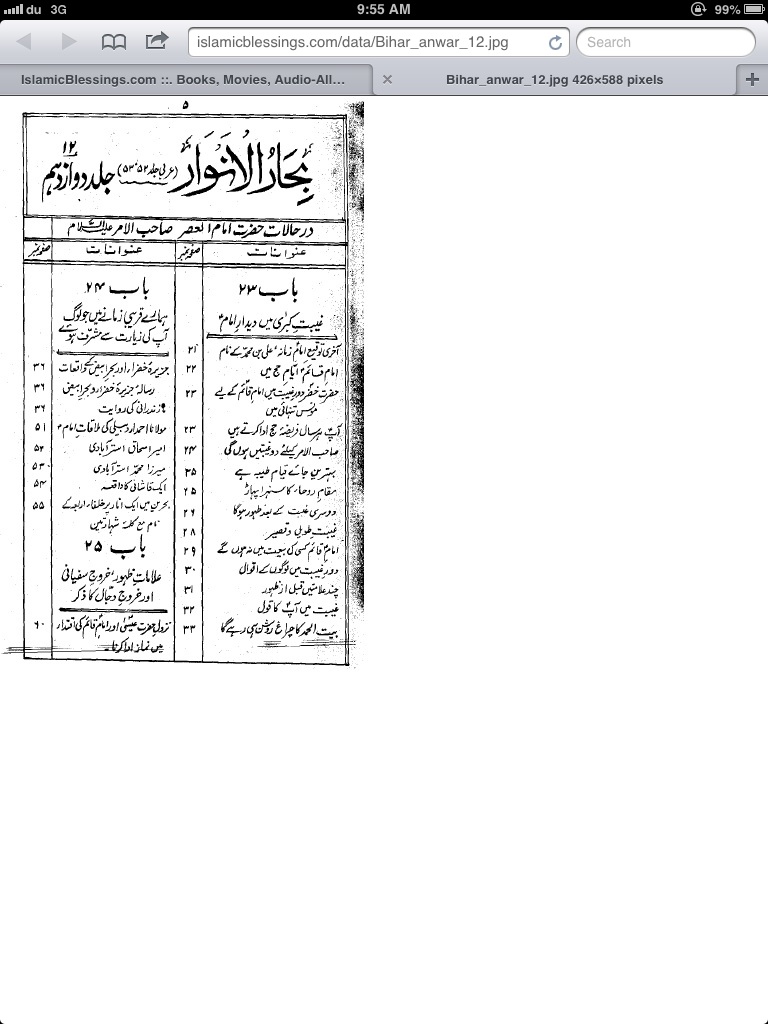 du 3G 9:55 AM 99%
islamicblessings.com/data/Bihar_anwar_12.jpg
Search
IslamicBlessings.com ::. Books, Movies, Audio-All…
Bihar_anwar_12.jpg 426×588 pixels
۵
بحار الانوار (عربی جلد ۵۲-۵۳) جلد دوازدہم ۱۲
درحالات حضرت امام العصر صاحب الامر علیہ السلام
عنوانات صفحہ نمبر
باب ۲۳
غیبت کبریٰ میں دیدار امام
آخری توقیع امام زمانہ علی بن محمد کے نام ۲۱
امام قائم ایام حج میں ۲۲
حضرت خضر دورِ غیبت میں امام قائم کے لیے ۲۳
مونس تنہائی ہیں
آپ ہر سال فریضۂ حج ادا کرتے ہیں ۲۳
صاحب الامر کیلئے دو غیبتیں ہوں گی ۲۴
بہترین جائے قیام طیبہ ہے ۲۵
مقام روحاء کا سنہرا پہاڑ ۲۵
دوسری غیبت کے بعد ظہور ہوگا ۲۶
غیبت طویل و قصیر ۲۸
امام قائم کسی کی بیعت میں نہ ہوں گے ۲۹
دورِ غیبت میں لوگوں کے اقوال ۳۰
چند علامتیں قبل از ظہور ۳۱
غیبت میں آپ کا قول ۳۲
بیت الحمد کا چراغ روشن ہی رہے گا ۳۳
عنوانات صفحہ نمبر
باب ۲۴
ہمارے قریبی زمانے میں جو لوگ
آپ کی زیارت سے مشرف ہوئے
جزیرۂ خضراء اور بحر ابیض کے واقعات ۳۶
رسالہ جزیرۂ خضراء و بحر ابیض ۳۶
مازندرانی کی روایت ۳۶
مولانا احمد اردبیلی کی ملاقات امام ۵۱
امیر اسحاق استرآبادی ۵۲
میرزا محمد استرآبادی ۵۳
ایک قاشانی کا واقعہ ۵۴
بحرین میں ایک انار پر خلفاء اربعہ کے ۵۵
نام مع کلمۂ شہادتین
باب ۲۵
علاماتِ ظہور، خروجِ سفیانی
اور خروجِ دجال کا ذکر
نزول حضرت عیسیٰ اور امام قائم کی اقتداء ۶۰
میں نماز ادا کرنا۔